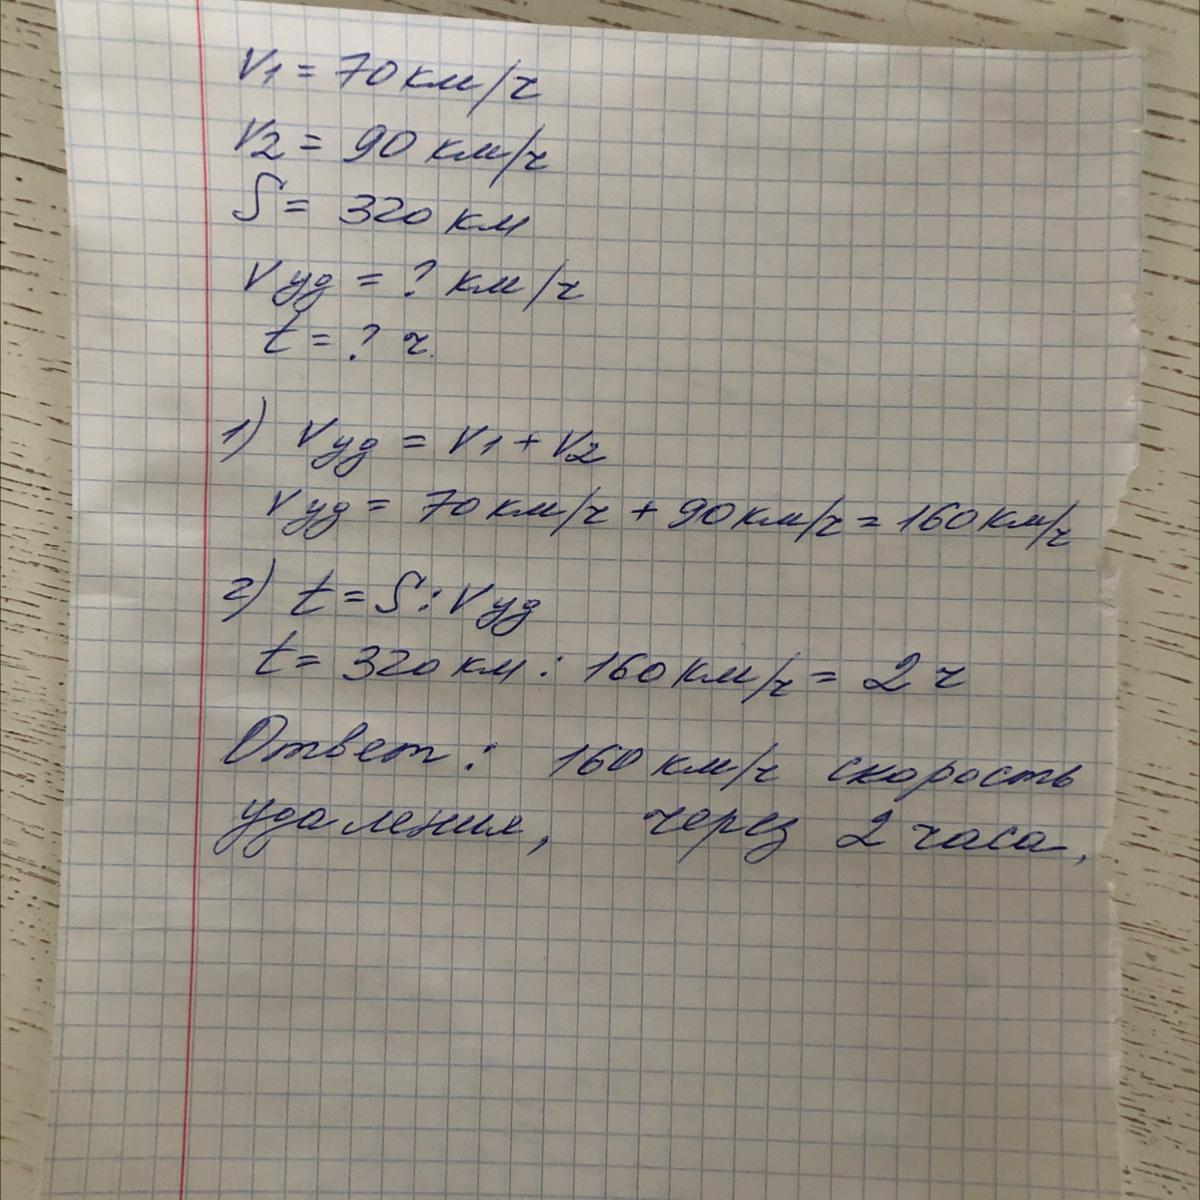 V1 = 70 км/ч
V2 = 90 км/ч
S = 320 км
Vуд = ? км/ч
t = ? ч.
1) Vуд = V1 + V2
Vуд = 70 км/ч + 90 км/ч = 160 км/ч
2) t = S : Vуд
t = 320 км : 160 км/ч = 2 ч
Ответ : 160 км/ч скорость
удаления, через 2 часа,